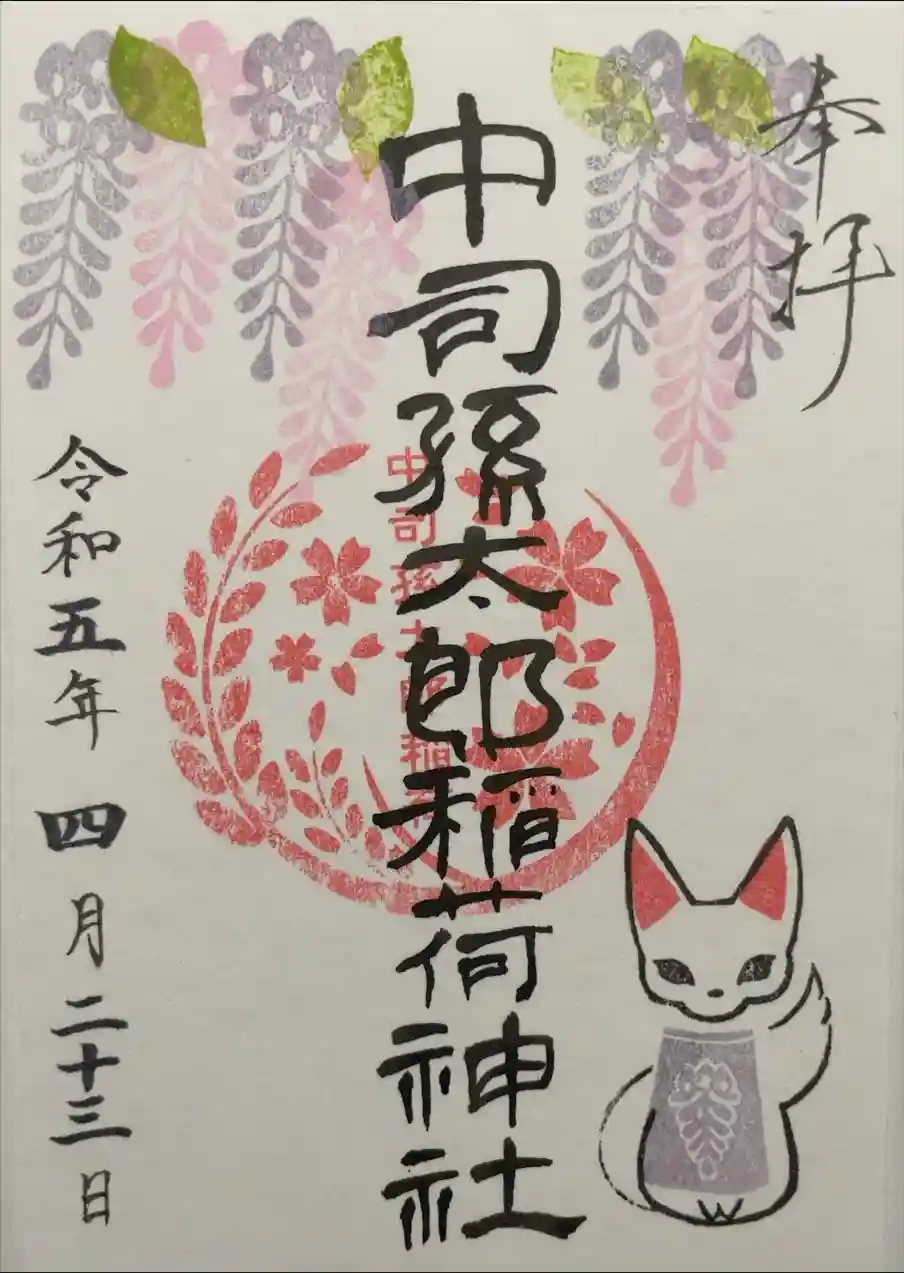 奉拝
中司孫太郎稲荷神社
中司孫太郎稲荷
令和五年四月二十三日